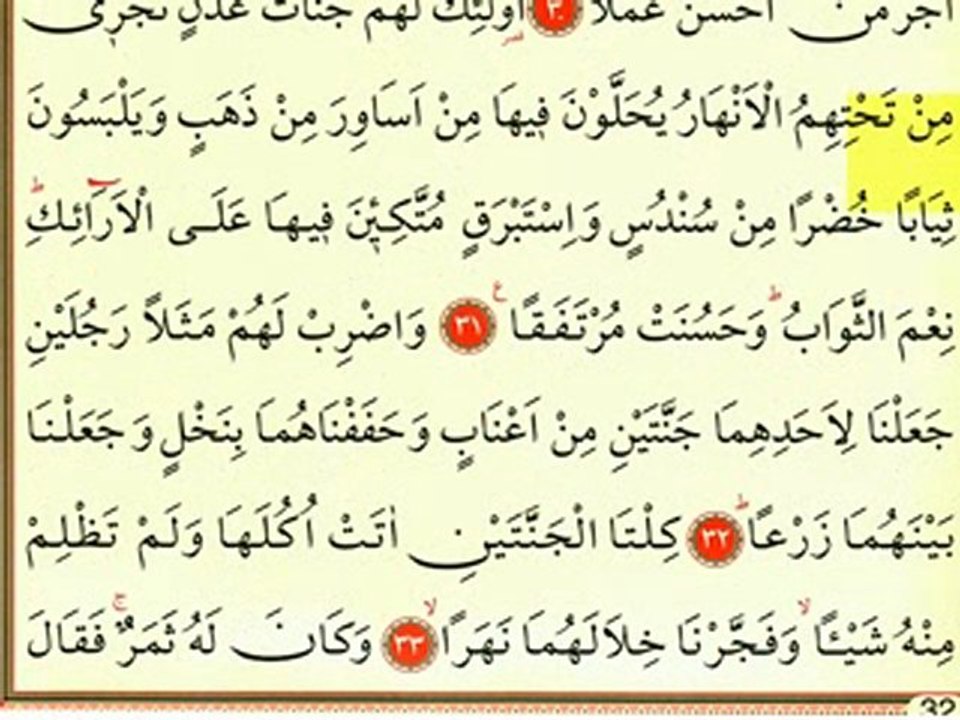 اَجْرَ مَنْ اَحْسَنَ عَمَلاً ﴿٣٠﴾ اُو۬لٰٓئِكَ لَهُمْ جَنَّاتُ عَدْنٍ تَجْر۪ي
مِنْ تَحْتِهِمُ الْاَنْهَارُ يُحَلَّوْنَ ف۪يهَا مِنْ اَسَاوِرَ مِنْ ذَهَبٍ وَيَلْبَسُونَ
ثِيَابًا خُضْرًا مِنْ سُنْدُسٍ وَاِسْتَبْرَقٍ مُتَّكِـ۪ٔينَ ف۪يهَا عَلَى الْاَرَٓائِكِۜ
نِعْمَ الثَّوَابُۜ وَحَسُنَتْ مُرْتَفَقًا۟ ﴿٣١﴾ وَاضْرِبْ لَهُمْ مَثَلاً رَجُلَيْنِ
جَعَلْنَا لِاَحَدِهِمَا جَنَّتَيْنِ مِنْ اَعْنَابٍ وَحَفَفْنَاهُمَا بِنَخْلٍ وَجَعَلْنَا
بَيْنَهُمَا زَرْعًاۜ ﴿٣٢﴾ كِلْتَا الْجَنَّتَيْنِ اٰتَتْ اُكُلَهَا وَلَمْ تَظْلِمْ
مِنْهُ شَيْـًٔاۙ وَفَجَّرْنَا خِلَالَهُمَا نَهَرًاۙ ﴿٣٣﴾ وَكَانَ لَهُ ثَمَرٌۚ فَقَالَ